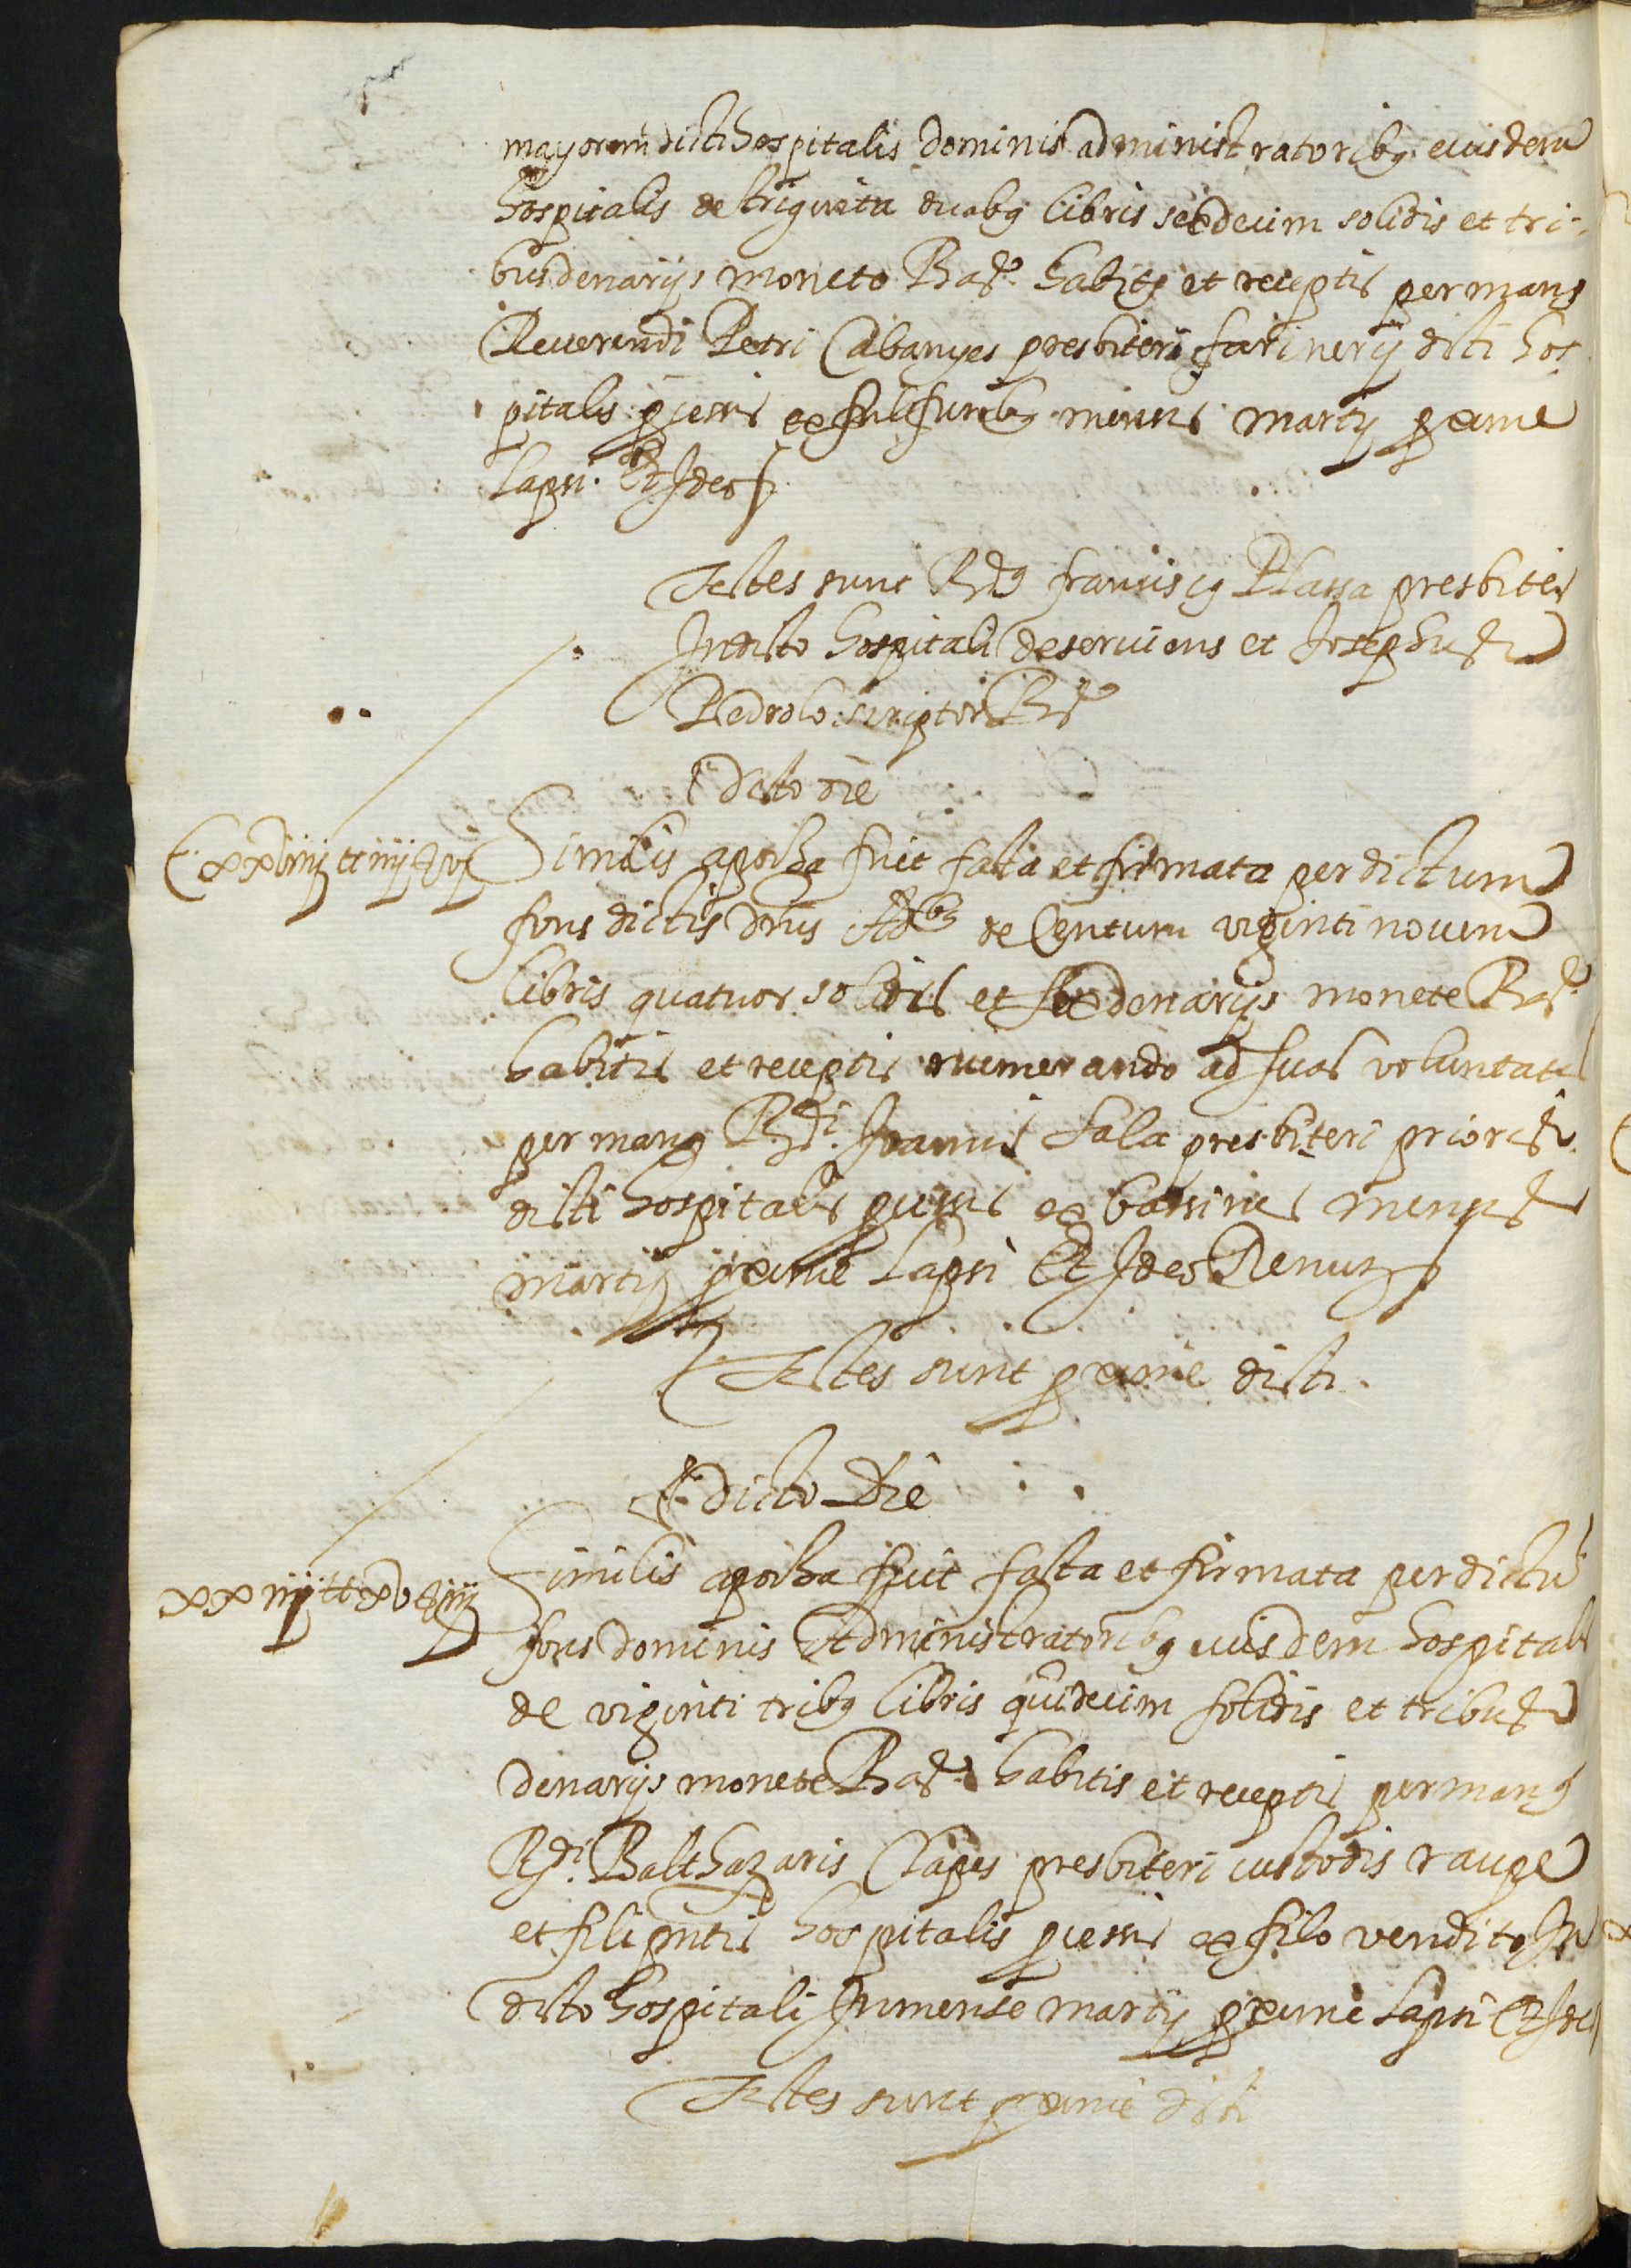 mayorem dicti hospitalis dominis administratoribus eiusdem
hospitalis de triginta duabus libris sexdecim solidis et tri-
bus denarijs monete Bar.e habitis et receptis per manus
Reverendi Petri Cabanyes presbiteri farinerij dicti hos
pitalis processis ex fulsuribus mensis martij proxime
lapsi. Et Ideo
Testes sunt Rdus franciscus Plassa presbiter
In dicto hospitali deserviens et Josephus
Pedrolo scriptor Bar.e
Dicto die
Similis apocha fuit facta et firmata per dictum
fons dictis dnis Ad.bus de Centum viginti novem
libris quatuor solidis et sex denarijs monete Bar.e
habitis et receptis numerando ad suas voluntates
per manus Rdi. Joannis Sala presbiteri prioris
dicti hospitalis processis ex bassines mensis
martij proxime lapsi Et Ideo Renun
Testes sunt proxime dicti.
Dicto die
Similis apocha fuit facta et firmata per dictū
fons dominis Administratoribus eiusdem hospitalis
de viginti tribus libris quidecim solidis et tribus
denarijs monete Bar.e habitis et receptis per manus
Rdi. Balthazaris Clapes presbiteri custodis raupe
et fili pntis hospitalis processis ex filo vendito In
dicto hospitali In mense martij proxime lapsi Et Ideo
Testes sunt proxime dicti